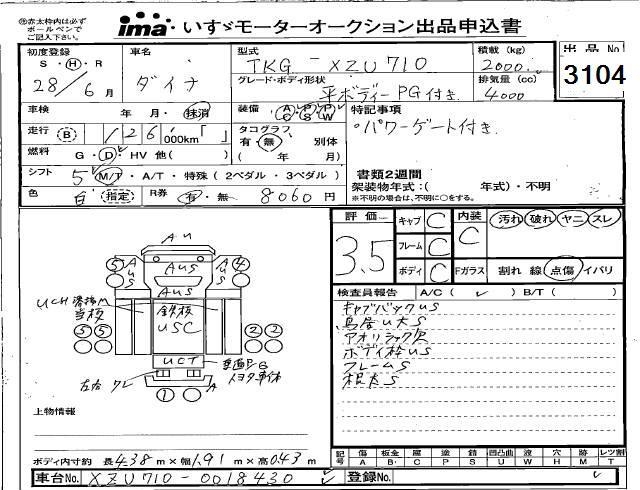 ㊟赤太枠内は必ずボールペンでご記入下さい。
ima いすゞモーターオークション出品申込書
初度登録 S・H・R 28年 6月
車名 ダイナ
型式 TKG - XZU710
積載 (kg) 2000
出品No 3104
グレード・ボディ形状 平ボディー PG付き
排気量 (cc) 4000
車検 年 月・抹消
装備 AC PS PW
特記事項
パワーゲート付き
走行 B 126,000km「 」
タコグラフ 有・無 別体 ( 年 月)
燃料 G・D・HV 他( )
シフト 5 M/T・A/T・特殊 (2ペダル・3ペダル)
書類2週間
架装物年式:( 年式)・不明
※不明の場合は、不明に○をする。
色 白 指定
R券 有・無 8060円
評価 3.5
キャブ C
フレーム C
ボディ C
内装 C
汚れ 破れ ヤニ スレ
Fガラス 割れ 線 点傷 イバリ
検査員報告 A/C( ✓ ) B/T( )
キャブバックUS
鳥居U大S
アオリシャック欠
ボディ枠US
フレームS
根太S
AU
5 AUS AUS AUS 4
AUS
鉄板
USC
5 5 2 2
UCT
左右 クレ
A
1
上物情報
ボディ内寸約 長4.38m×幅1.91m×高0.43m
記号 傷A 板金B 腐C 塗P 錆S 凹凸曲U 波W 穴H 跡M レンズ割T
車台No. XZU710-0018430
登録No.